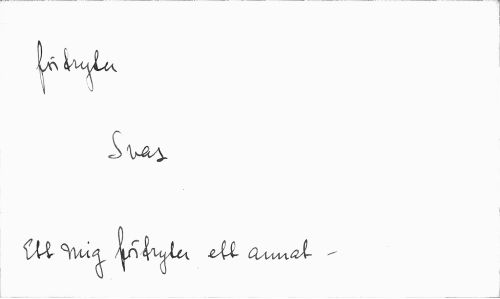 förtryter
Svas
Ett mig förtryter ett annat –